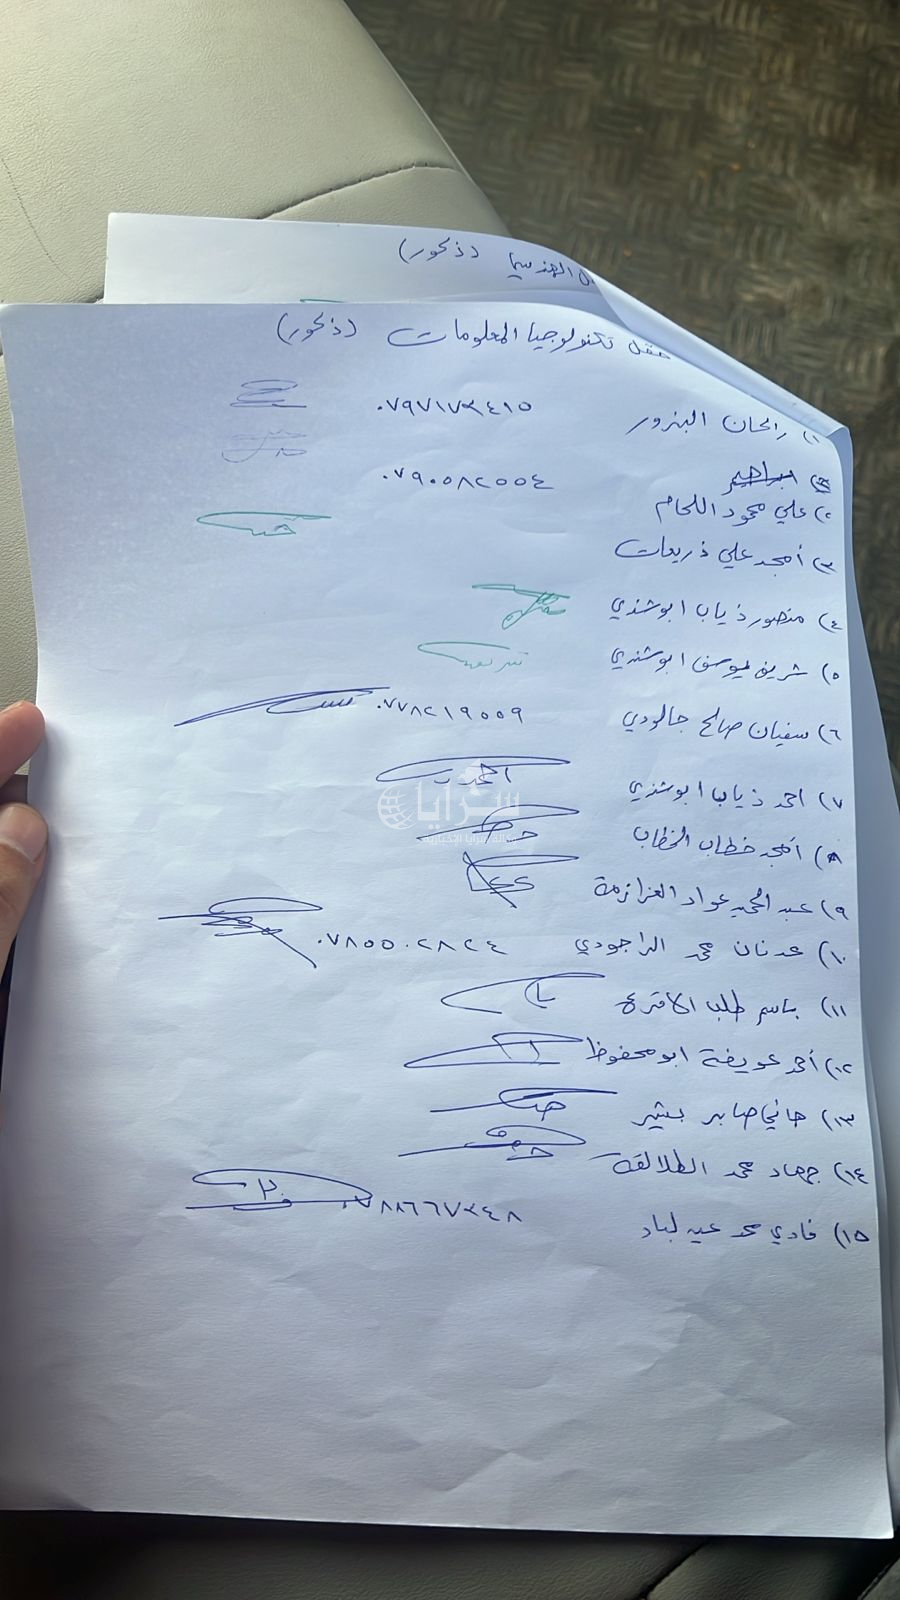 الهندسيا (ذكور)
حقل تكنولوجيا المعلومات (ذكور)
١) راكان البزور ٠٧٩٧١٧٣٤١٥
ابراهيم
٢) علي محمود اللحام ٠٧٩٠٥٨٢٥٥٤
٣) أمجد علي ذريعات
٤) منصور ذياب ابوشندي
٥) شريف يوسف ابوشندي
٦) سفيان صالح جالودي ٠٧٧٨٢١٩٥٥٩
٧) احمد ذياب ابوشندي
سرايا
٨) أمجد خطاب الخطاب
٩) عبدالحميد عواد العزازمة
١٠) عدنان محمد الراجودي ٠٧٨٥٥٠٢٨٢٤
١١) باسم طلب
١٢) أحمد عويضة ابومحفوظ
١٣) هاني صابر بشير
١٤) جهاد محمد الطلالقة
١٥) فادي محمد عيد لباد ٠٧٨٨٦٦٧٣٤٨